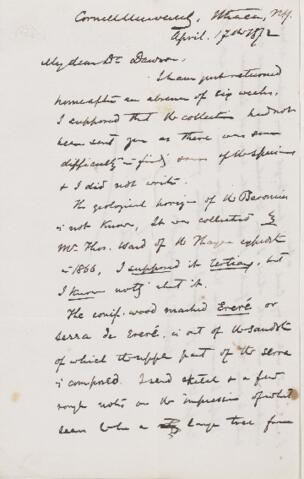 Cornell University, Ithaca, N.Y.
April. 17th 1872
My dear Dr Dawson.
I have just returned
home after an absence of six weeks.
I supposed that the collection had not
been sent you as there was some
difficulty in finding some of the specimens
& I did not write.
The geological horizon of the
is not known. It was collected by
Mr. Thos. Ward of the Thayer expedit
in 1866, I supposed it Tertiary, but
I know nothing about it.
The conif. wood marked Ereré or
Serra de Ereré. is out of the sandst
of which the upper part of the serra
is composed. I send sketch & a few
rough notes on the impression of what
seems to be a large tree